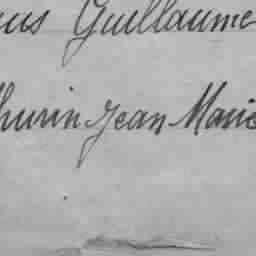 us Guillaume
hurin Jean Marie